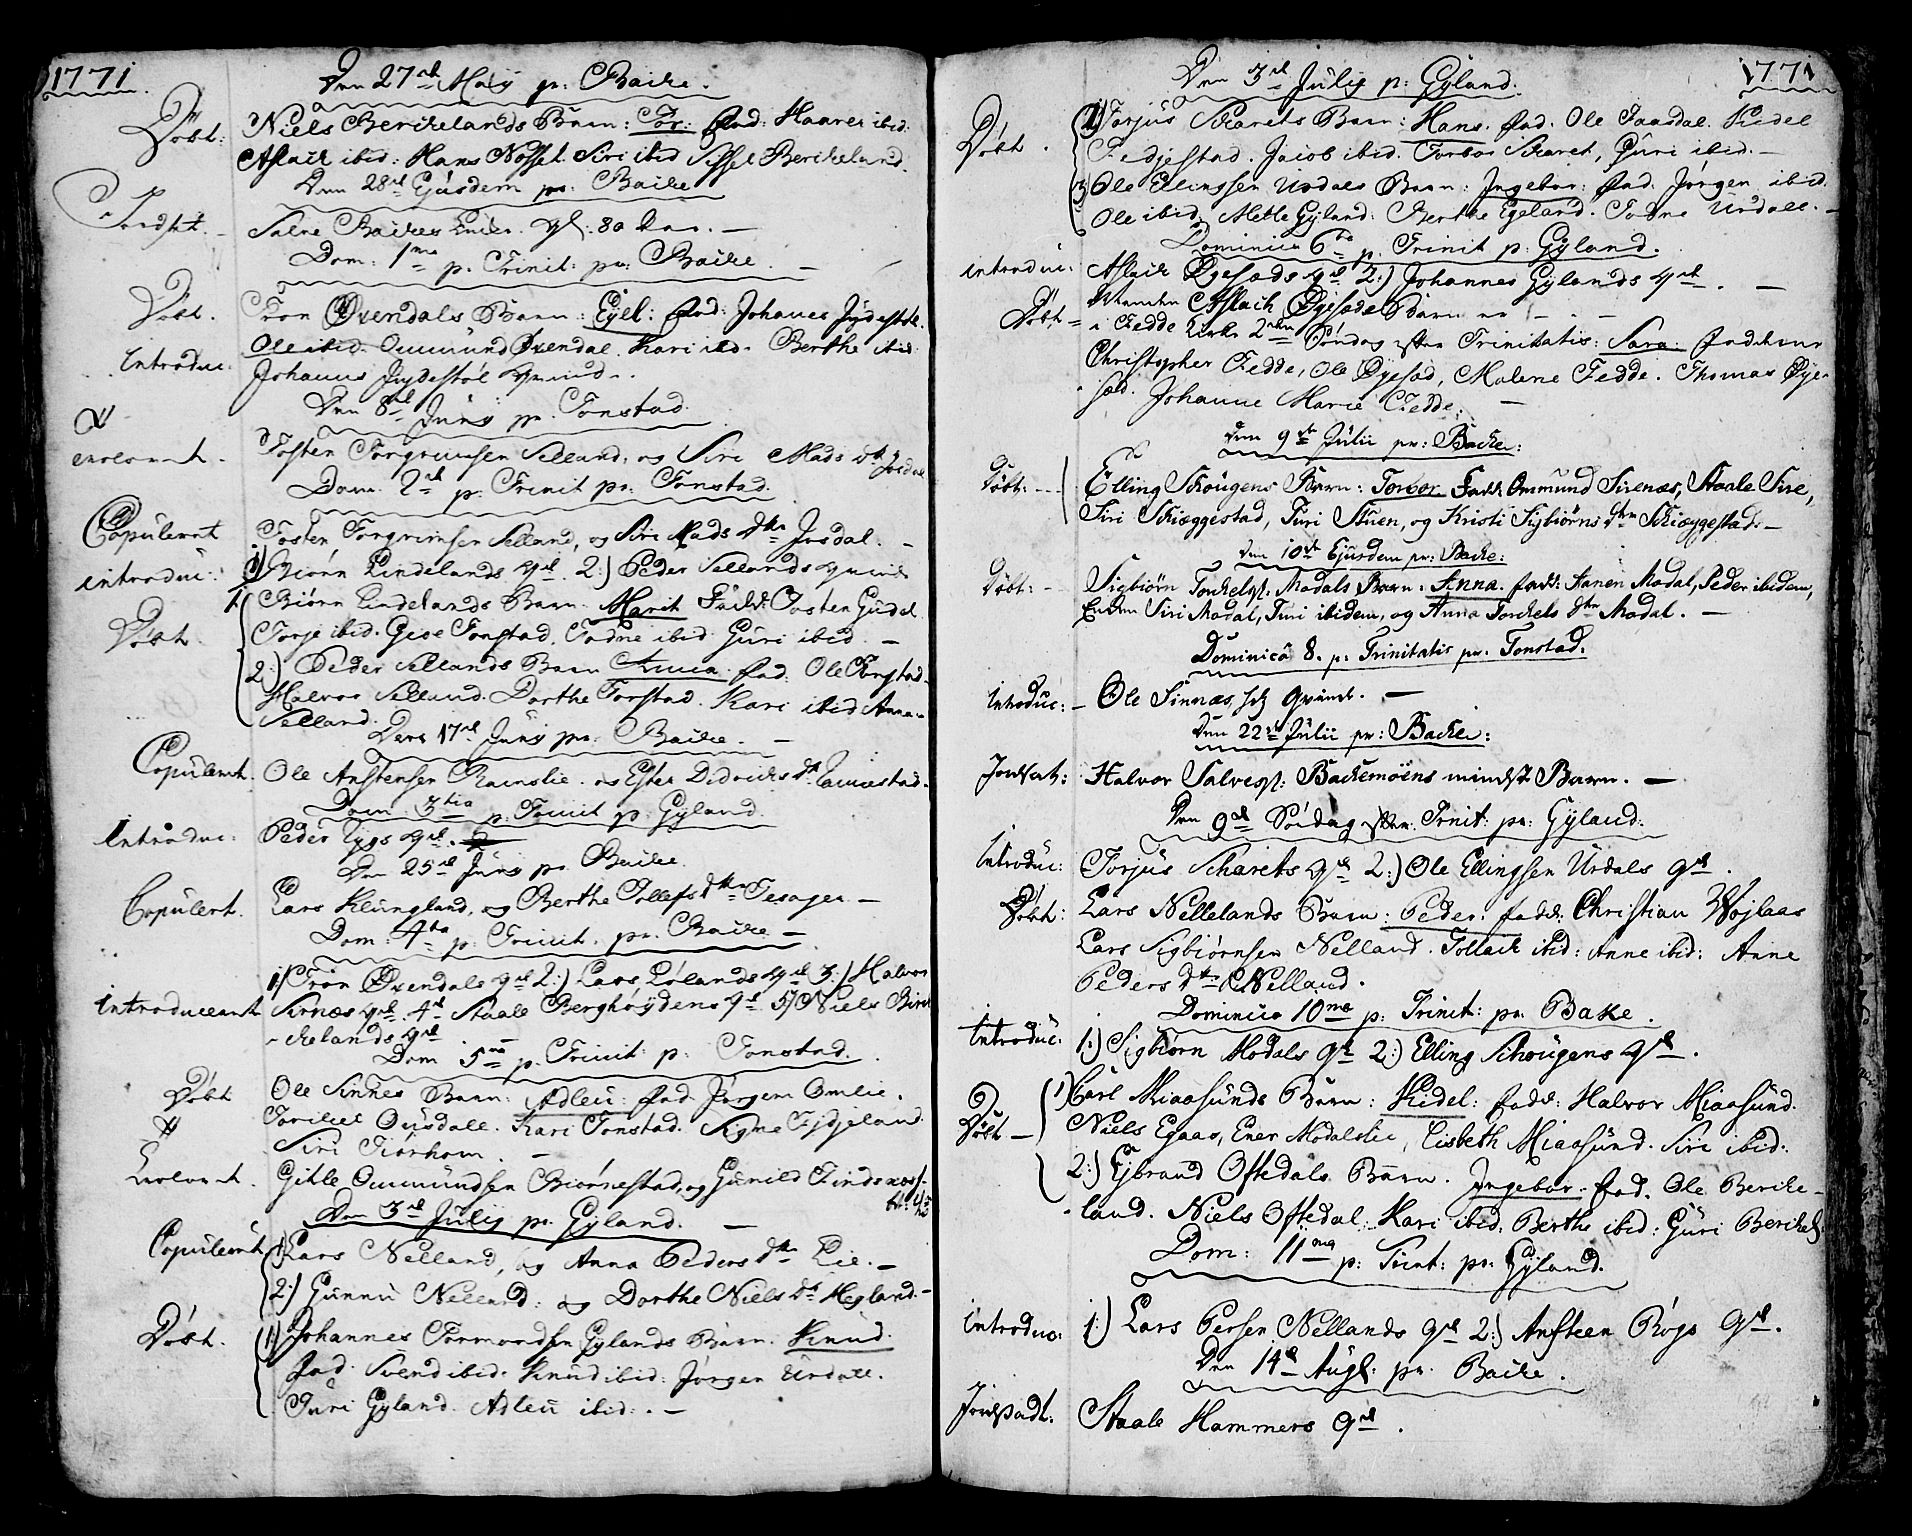 1771.
Den 27de Maij pr: Backe.
Döbt: Niels Berckelands Barn: Tor: fad: Haaver ibid:
Aslach ibid: Hans Nossel. Siri ibid Sissel Berckeland.
Den 28de Ejusdem pr: Backe
Jordsat. Salve Backes Enke. gl: 80 Aar. —
Dom: 1ma p. Trinit: pr: Backe. —
Döbt. Tron Øxendals Barn: Eyel: fad: Johanes Jydestöl.
Ole ibid. Ommund Øxendal. Kari ibid. Berthe ibid
Introduc: Johanes Jydestöl qvinde.
Den 8de Junij pr. Tonstad.
Trolovet. Tosten Torgrimsen Selland, og Siri Mads dtr Josdal
Dom. 2da p. Trinit pr. Tonstad.
Copuleret Tosten Torgrimsen Selland, og Siri Mads dtr Josdal. —
introduc: 1) Biörn Lindelands qde 2:) Peder Sellands qvinde
Döbt. 1) Biörn Lindelands Barn. Marit Fadd: Tosten Gudal
Torje ibid. Gise Tonstad. Todne ibid Guri ibid —
2:) Peder Sellands Barn Anna. fad: Ole Torstad
Halvor Selland. Dorthe Torstad. Kari ibid Anna
Selland.
Den 17de Junij pr: Backe. —
Copuleret. Ole Anstensen Ramslie. og Ester Didrichs dtr Lunestad.
Dom. 3tia p. Trinit p: Gyland.
Introduc: Peder Lygs qde.
Den 25de Junij pr Backe.
Copulert. Lars Klungland, og Berthe Tollefs dtr Tesager —
Dom: 4ta p: Trinit. pr. Backe —
1) Tron Øxendals qde 2:) Lars Lölands qde 3:) Halvor
introduceret Sirnæs qde. 4de Staale Berghöydens qde 5) Niels Birk
kelands qde
Dom 5ta p. Trinit p: Tonstad.
Döbt Ole Sinnes Barn: Adleu: fad. Jørgen Omlie.
Torkel Ousdall. Kari Tonstad. Signe Fydjeland.
Siri Tiörhom. —
Trolovet. Gitle Ommundsen Biörnestad, og Gunild Tindsnæs.
Den 3de Julij pr. Gyland. —
Copuleret 1) Lars Nelland, og Anna Peders dtr Lie. —
2:) Gunnu Nelland: og Dorthe Niels dt Hegland. —
Döbt. 1) Johannes Tormondsen Gylands Barn. Knud.
fad. Svend ibid. Knud ibid: Jörgen Urdall.
Turi Gyland. Adleu ibid: —
1771
Den 3de Julij p: Gyland.
Döbt. 2) Torjus Skarets Barn: Hans. fad. Ole Faasdal. Kidel
Fedjestad. Jacob ibid. Torbor Skaret, Guri ibid. —
3) Ole Ellingsen Urdals Barn: Ingebor: fad. Jörgen ibid.
Ole ibid. Mette Gyland: Berthe Egeland. Todne Urdall. —
Dominica 6ta p. Trinit p: Gyland.
introduc: Aslach Øyesads qde 2:) Johannes Gylands qde. —
Döbt Aslach Øyesads Barn er
i Fedde Kirke 2den Söndag efter Trinitatis: Sara. fadderne
Christopher Fedde, Ole Øyesad, Malene Fedde. Thomas Øye
sad. Johanne Marie Fedde: —
Den 9de Julii pr: Backe:
Döbt: Elling Skougens Barn: Torbor. Fadd: Ommund Sirenæs, Staale Sire,
Siri Skiæggestad, Turi Stuen, og Kristi Sigbiörns dtr Skiæggestad. —
Den 10de Ejusdem pr: Backe:
Döbt: Sigbiörn Torkelss: Modals Barn: Anna. fadd: Aanen Modal, Peder ibidem,
Siri Modal, Turi ibidem, og Anna Torkels dtr Modal. —
Dominica 8. p: Trinitatis pr. Tonstad.
introduc: Ole Sinnæs, hs qvinde. —
Den 22de Julii pr: Backe:
Jordsat: Halvor Salvess: Backemöens mindste Barn. —
Den 9de Söndag efter Trnit: pr: Gyland.
Introduc: Torjus Skarets qde 2:) Ole Ellingsen Urdals qde.
Döbt: Lars Nellelands Barn: Peder: fadd: Christian Wöjlaas
Lars Sigbiörnsen Nelland. Tollach ibid: Anne ibid: Anne
Peders dtr Nelland.
Dominica 10ma p: Trinit: pr. Bake.
Introduc: 1:) Sigbiörn Modals qde 2:) Elling Schougens qde.
Döbt 1) Carl Miaasunds Barn: Kidel: fadd: Halvor Miaasund.
Niels Egaas, Ener Modalslie, Lisbeth Miaasund. Siri ibid:
2:) Ejbrand Oftedals Barn. Ingebor: fad. Ole Bercke
land. Niels Oftedal. Kari ibid. Berthe ibid: Guri Berckel:
Dom: 11ma p: Trint: pr: Gyland.
introduc: 1:) Lars Persen Nellands qde 2:) Ansteen Röys qde.
Den 14de Augs: pr. Backe.
Jordsadt: Staale Hammers qde.